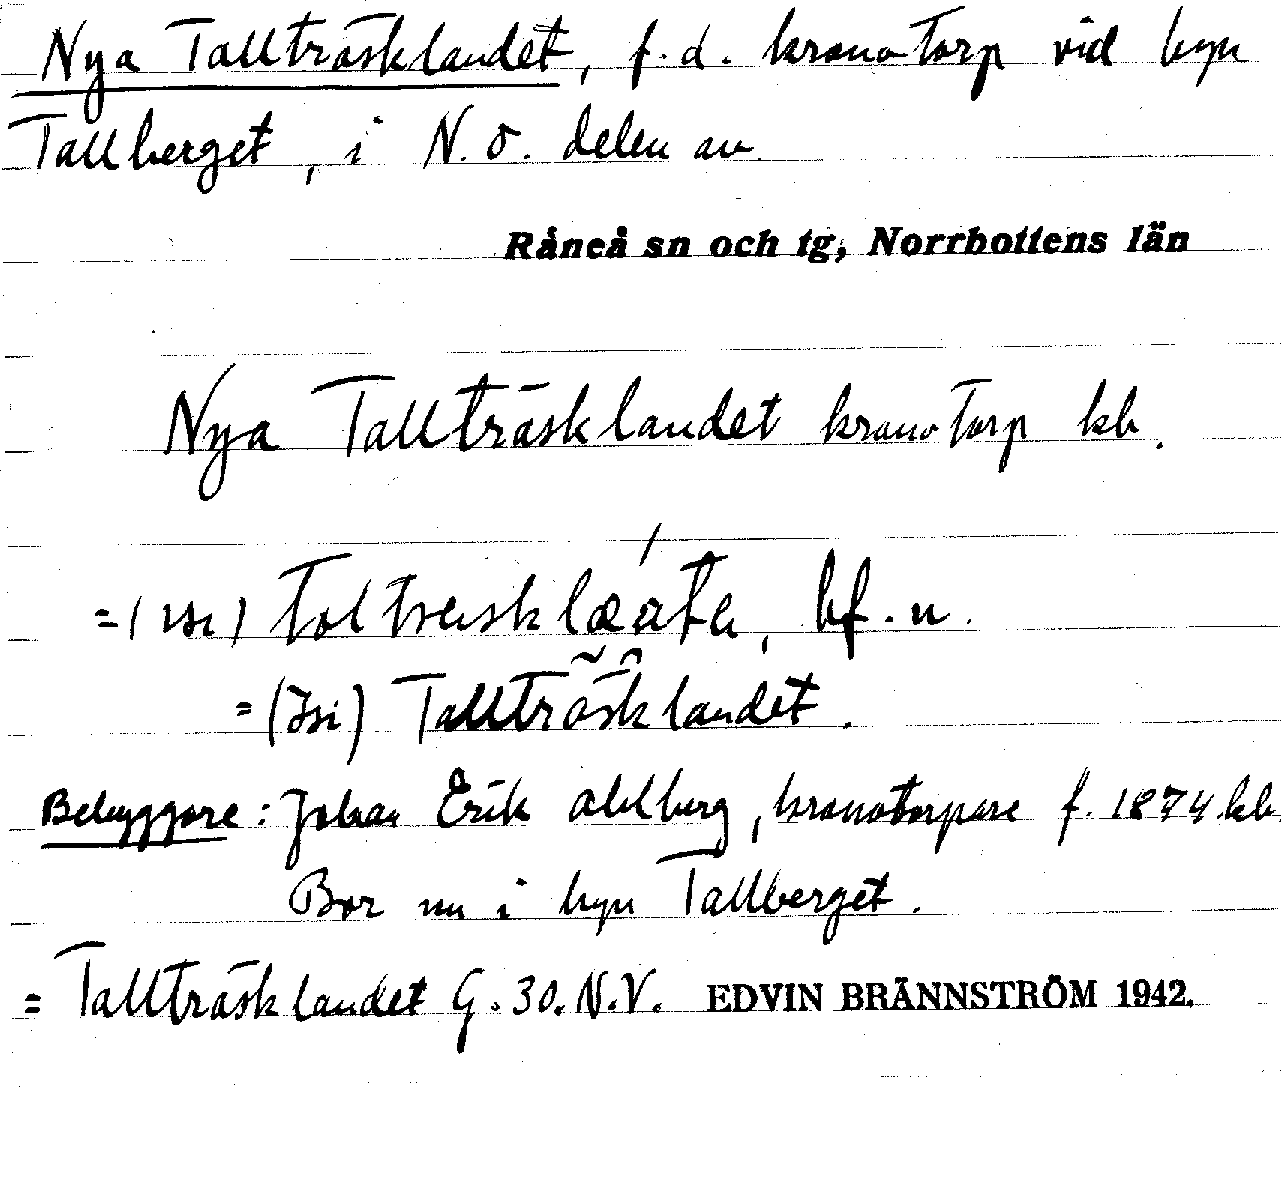 Nya Tallträsklandet, f.d. kronotorp vid byn
Tallberget, i N.O. delen av
Råneå sn och tg, Norrbottens län
Nya Tallträsklandet kronotorp kb.
bf. n.
Tallträsklandet.
Bebyggare: Johan Erik Ahlberg, kronotorpare f. 1874 kb.
Bor nu i byn Tallberget.
= Tallträsklandet G. 30. N.V. EDVIN BRÄNNSTRÖM 1942.